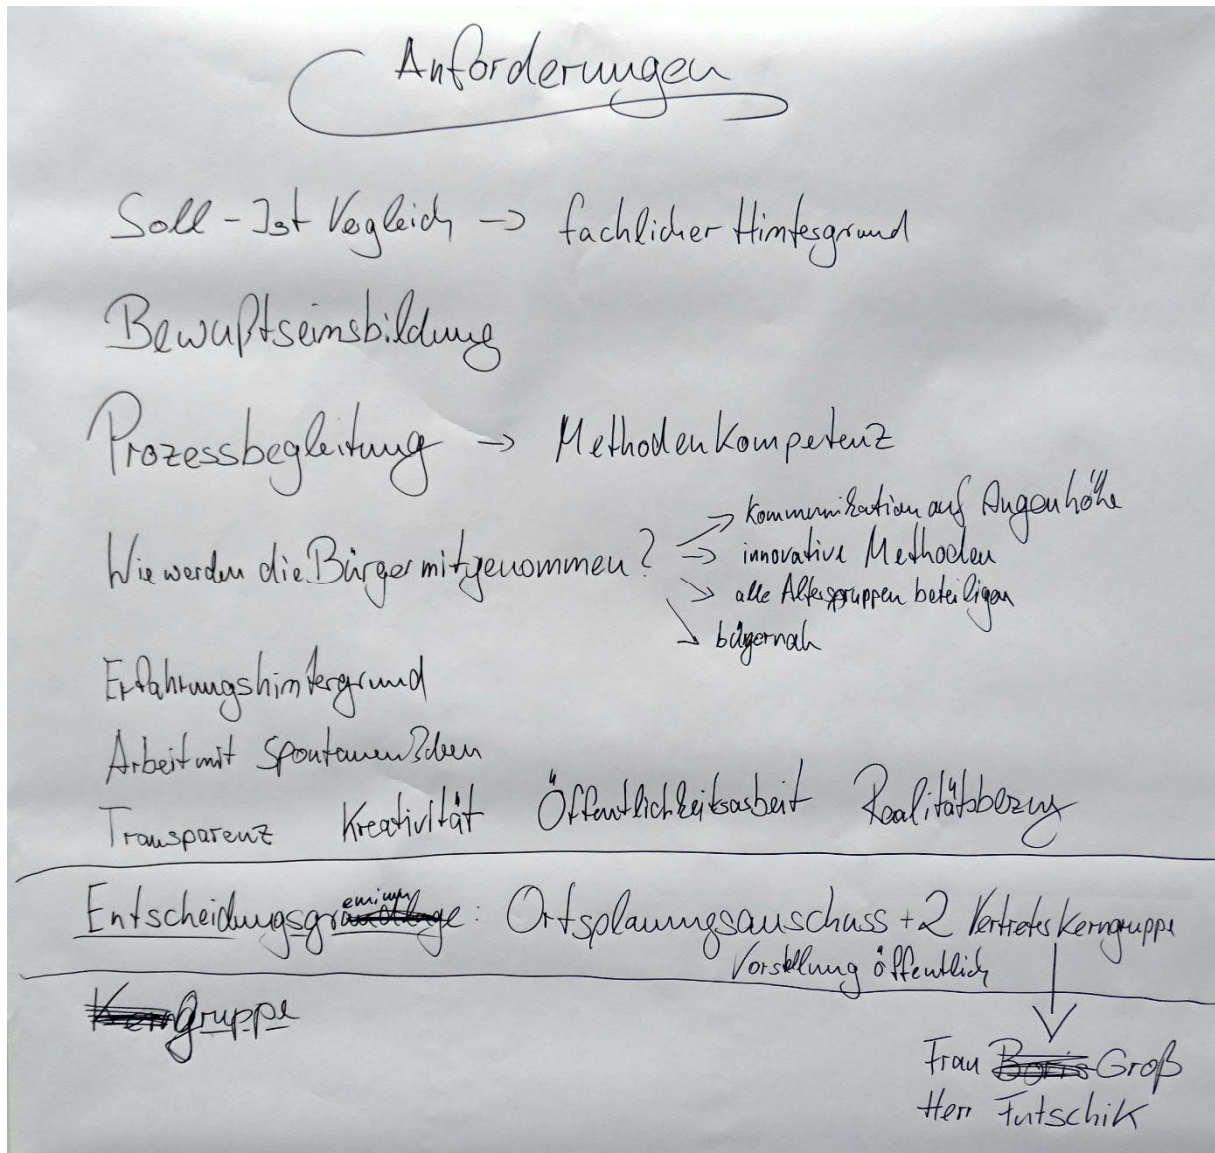 Anforderungen
Soll - Ist Vegleich → fachlicher Hintergrund
Bewußtseinsbildung
Prozessbegleitung → Methodenkompetenz
Wie werden die Bürger mitgenommen?
→ Kommunikation auf Augenhöhe
→ innovative Methoden
→ alle Altersgruppen beteiligen
→ bürgernah
Erfahrungshintergrund
Arbeit mit spontanen Ideen
Transparenz Kreativität Öffentlichkeitsarbeit Realitätsbezug
Entscheidungsgremium: Ortsplanungsauschuss + 2 Vertreter Kerngruppe
Vorstellung öffentlich
gruppe
Frau Groß
Herr Futschik